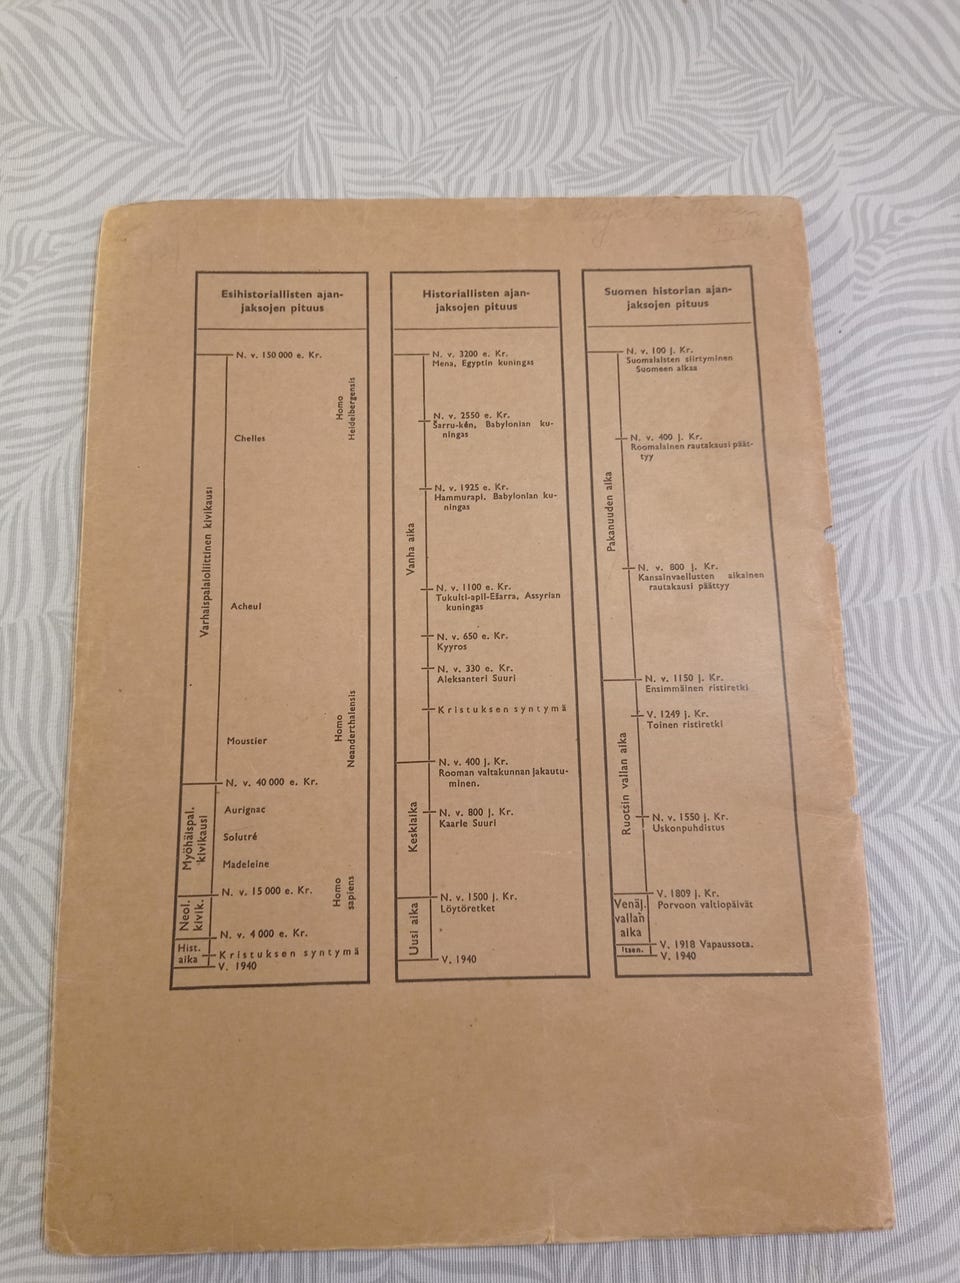 Esihistoriallisten ajan-
jaksojen pituus
N. v. 150 000 e. Kr.
Homo
Heidelbergensis
Chelles
Varhaispalaloliittinen kivikausi
Acheul
Homo
Neanderthalensis
Moustier
N. v. 40 000 e. Kr.
Myöhäispal.
kivikausi
Aurignac
Solutré
Madeleine
Homo
sapiens
N. v. 15 000 e. Kr.
Neol.
kivik.
N. v. 4 000 e. Kr.
Hist.
aika
Kristuksen syntymä
V. 1940
Historiallisten ajan-
jaksojen pituus
N. v. 3200 e. Kr.
Mena, Egyptin kuningas
N. v. 2550 e. Kr.
Šarru-kên, Babylonian ku-
ningas
N. v. 1925 e. Kr.
Hammurapi, Babylonian ku-
ningas
Vanha aika
N. v. 1100 e. Kr.
Tukulti-apil-Ešarra, Assyrian
kuningas
N. v. 650 e. Kr.
Kyyros
N. v. 330 e. Kr.
Aleksanteri Suuri
Kristuksen syntymä
N. v. 400 j. Kr.
Rooman valtakunnan jakautu-
minen.
Keskiaika
N. v. 800 j. Kr.
Kaarle Suuri
N. v. 1500 j. Kr.
Löytöretket
Uusi aika
V. 1940
Suomen historian ajan-
jaksojen pituus
N. v. 100 j. Kr.
Suomalaisten siirtyminen
Suomeen alkaa
N. v. 400 j. Kr.
Roomalainen rautakausi päät-
tyy
Pakanuuden aika
N. v. 800 j. Kr.
Kansainvaellusten aikainen
rautakausi päättyy
N. v. 1150 j. Kr.
Ensimmäinen ristiretki
V. 1249 j. Kr.
Toinen ristiretki
Ruotsin vallan aika
N. v. 1550 j. Kr.
Uskonpuhdistus
V. 1809 j. Kr.
Porvoon valtiopäivät
Venäj.
vallan
aika
V. 1918 Vapaussota.
Itsen.
V. 1940